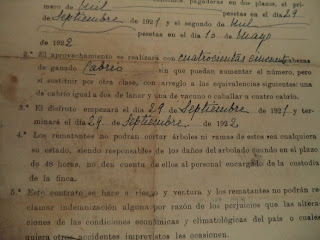 mero de mil pesetas en el día 29
de Septiembre de 1921 y el segundo de mil
pesetas en el día 10 de Mayo
de 1922
2.ª El aprovechamiento se realizará con cuatrocientas cincuenta cabezas
de ganado Cabrío sin que puedan aumentar el número, pero
sí sustituir por otra clase, con arreglo a las equivalencias siguientes: una
de cabrío igual a dos de lanar y una de vacuno o caballar a cuatro cabrío.
3.ª El disfrute empezará el día 29 de Septiembre de 1921 y ter-
minará el día 29 de Septiembre de 1922.
4.ª Los rematantes no podrán cortar árboles ni ramas de estos sea cualquiera
su estado, siendo responsables de los daños del arbolado cuando en el plazo
de 48 horas, no dez cuenta de ellos al personal encargado de la custodia
de la finca.
5.ª Este contrato se hace a riesgo y ventura y los rematantes no podrán re-
clamar indemnización alguna por razón de los perjuicios que las altera-
ciones de las condiciones económicas y climatológicas del país o cuales-
quiera otros accidentes imprevistos les ocasionen.